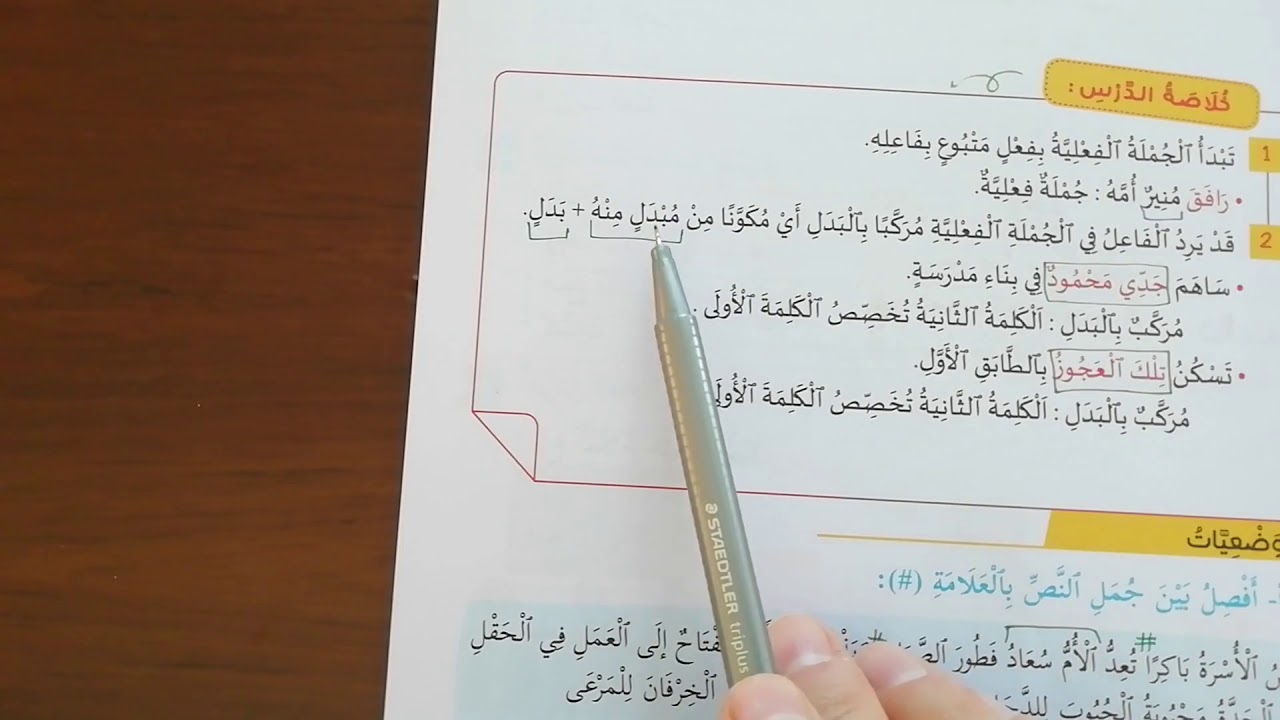 خُلَاصَةُ الدَّرْسِ:
1 تَبْدَأُ ٱلْجُمْلَةُ ٱلْفِعْلِيَّةُ بِفِعْلٍ مَتْبُوعٍ بِفَاعِلِهِ.
• رَافَقَ مُنِيرٌ أُمَّهُ : جُمْلَةٌ فِعْلِيَّةٌ.
2 قَدْ يَرِدُ ٱلْفَاعِلُ فِي ٱلْجُمْلَةِ ٱلْفِعْلِيَّةِ مُرَكَّبًا بِٱلْبَدَلِ أَيْ مُكَوَّنًا مِنْ مُبْدَلٍ مِنْهُ + بَدَلٍ.
• سَاهَمَ جَدِّي مَحْمُودٌ فِي بِنَاءِ مَدْرَسَةٍ.
مُرَكَّبٌ بِٱلْبَدَلِ : اَلْكَلِمَةُ ٱلثَّانِيَةُ تُخَصِّصُ ٱلْكَلِمَةَ ٱلْأُولَى .
• تَسْكُنُ تِلْكَ ٱلْعَجُوزُ بِٱلطَّابَقِ ٱلْأَوَّلِ.
مُرَكَّبٌ بِٱلْبَدَلِ : اَلْكَلِمَةُ ٱلثَّانِيَةُ تُخَصِّصُ ٱلْكَلِمَةَ ٱلْأُولَى
وَضْعِيَّاتُ
أَفْصِلُ بَيْنَ جُمَلِ ٱلنَّصِّ بِٱلْعَلَامَةِ (#):
ٱلْأُسْرَةُ بَاكِرًا # تُعِدُّ ٱلْأُمُّ سُعَادُ فَطُورَ # إِلَى ٱلْعَمَلِ فِي ٱلْحَقْلِ
ٱلْحُبُوبَ ٱلْخِرْفَانَ لِلْمَرْعَى
STAEDTLER triplus